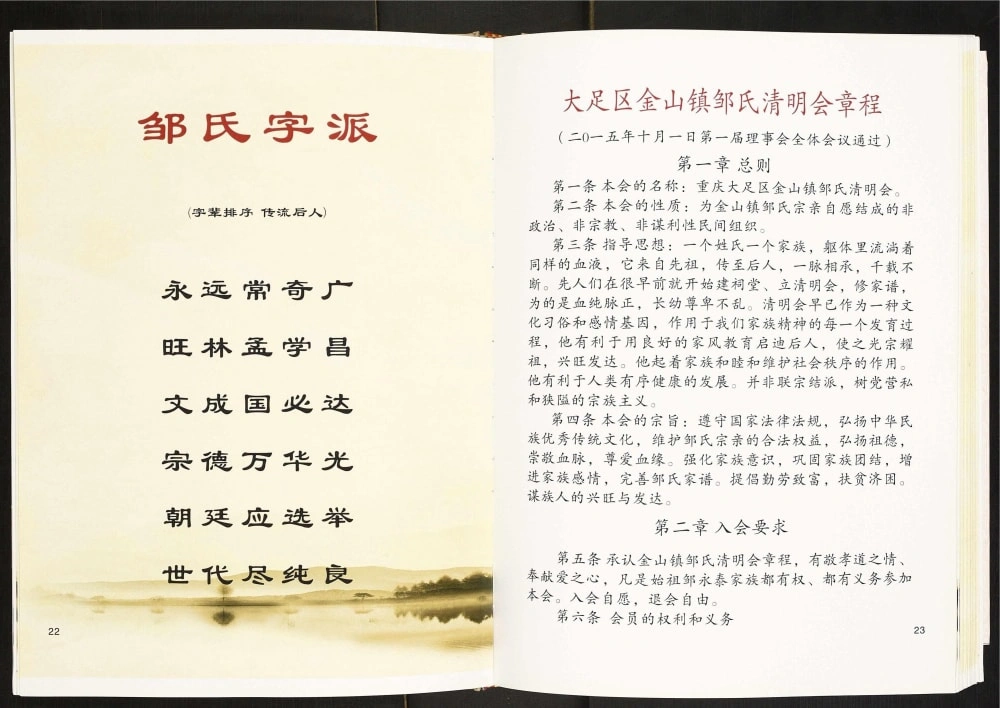 邹氏字派
(字辈排序 传流后人)
永远常奇广
旺林孟学昌
文成国必达
宗德万华光
朝廷应选举
世代尽纯良
22
大足区金山镇邹氏清明会章程
(二〇一五年十月一日第一届理事会全体会议通过)
第一章 总则
第一条 本会的名称：重庆大足区金山镇邹氏清明会。
第二条 本会的性质：为金山镇邹氏宗亲自愿结成的非
政治、非宗教、非谋利性民间组织。
第三条 指导思想：一个姓氏一个家族，躯体里流淌着
同样的血液，它来自先祖，传至后人，一脉相承，千载不
断。先人们在很早前就开始建祠堂、立清明会，修家谱，
为的是血纯脉正，长幼尊卑不乱。清明会早已作为一种文
化习俗和感情基因，作用于我们家族精神的每一个发育过
程，他有利于用良好的家风教育启迪后人，使之光宗耀
祖，兴旺发达。他起着家族和睦和维护社会秩序的作用。
他有利于人类有序健康的发展。并非联宗结派，树党营私
和狭隘的宗族主义。
第四条 本会的宗旨：遵守国家法律法规，弘扬中华民
族优秀传统文化，维护邹氏宗亲的合法权益，弘扬祖德，
崇敬血脉，尊爱血缘。强化家族意识，巩固家族团结，增
进家族感情，完善邹氏家谱。提倡勤劳致富，扶贫济困。
谋族人的兴旺与发达。
第二章 入会要求
第五条 承认金山镇邹氏清明会章程，有敬孝道之情、
奉献爱之心，凡是始祖邹永泰家族都有权、都有义务参加
本会。入会自愿，退会自由。
第六条 会员的权利和义务
23